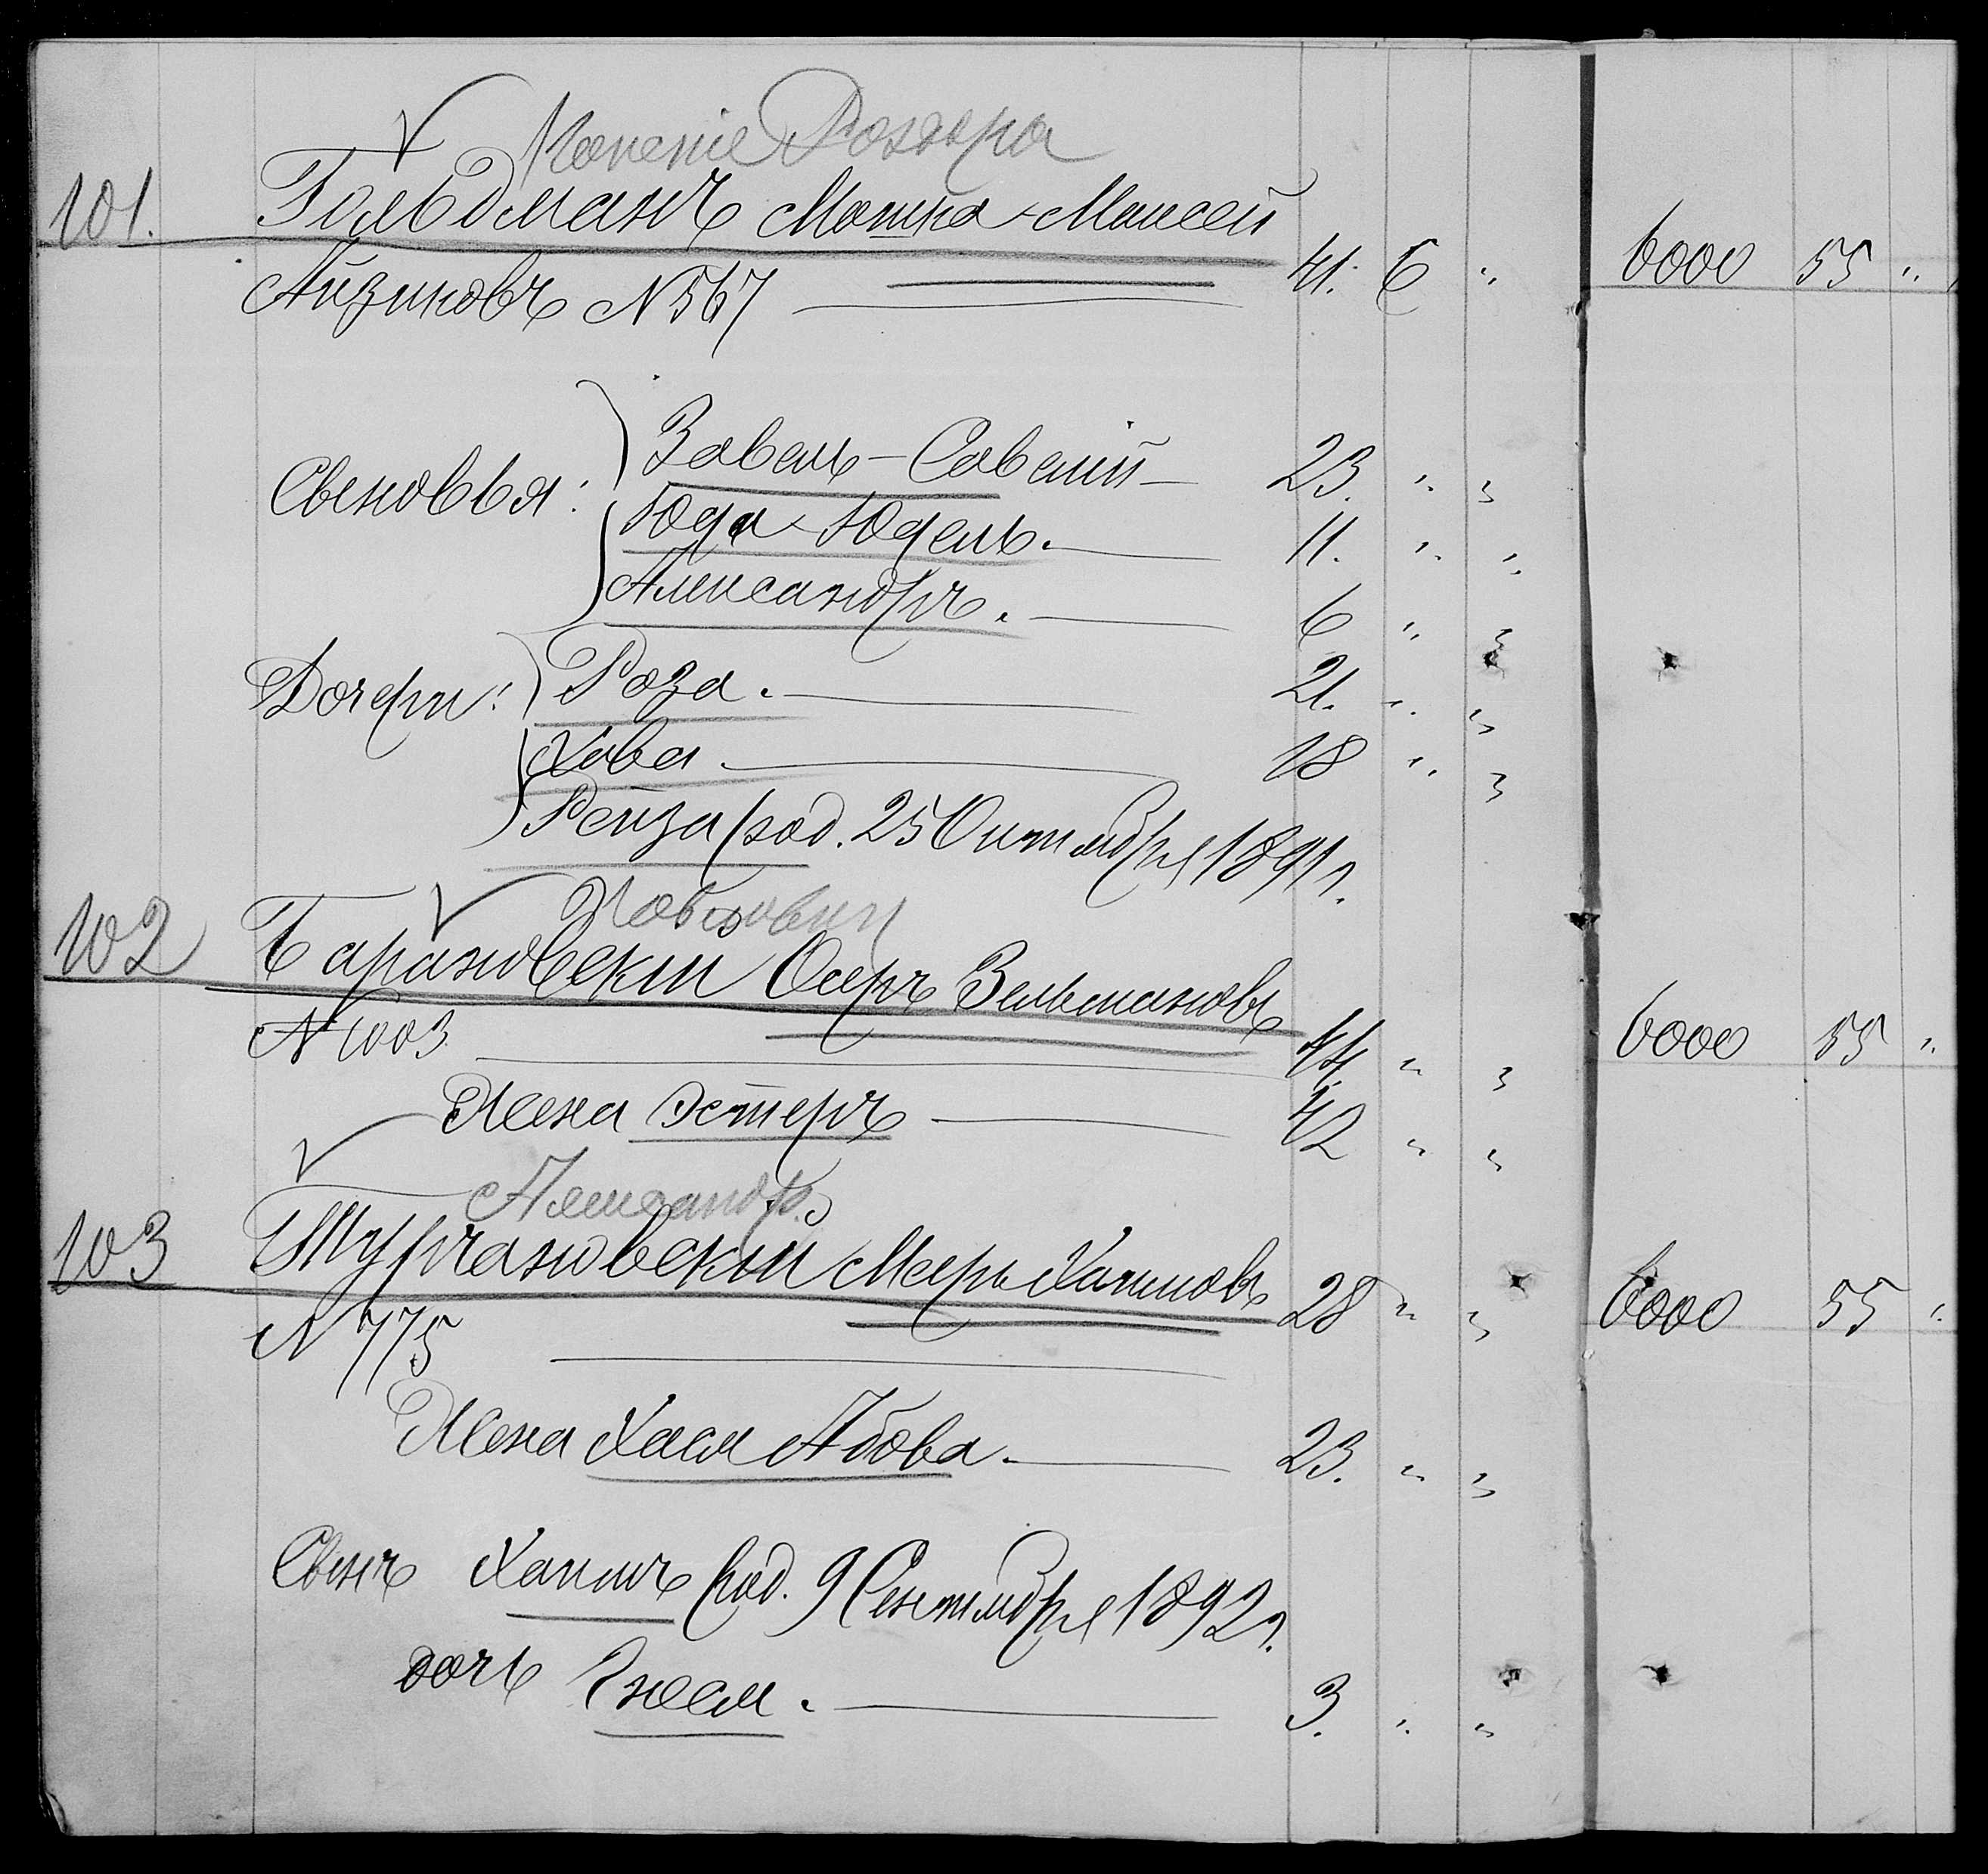 101. Гольдманъ Мошка-Моисей
Айзиковъ N 567 41. 6 " 6000 55 "
Сыновья: Завель-Савелий 23. " "
Юда-Юдель. 11. " "
Александръ. 6 " "
Дочери: Роза. 21. " "
Хава 18 " "
Рейза род. 25 Октября 1891 г.
102 Барановский Осеръ Зельмановъ
N 1003 44 " " 6000 55 "
Жена Эстеръ 42 " "
Александр.
103 Турчановский Мееръ Хаимовъ 28 " " 6000 55 "
N 775
Жена Хася Абова. 23. " "
Сынъ Хаимъ род. 9 Сентября 1892 г.
дочь Гнеся. 3. " "